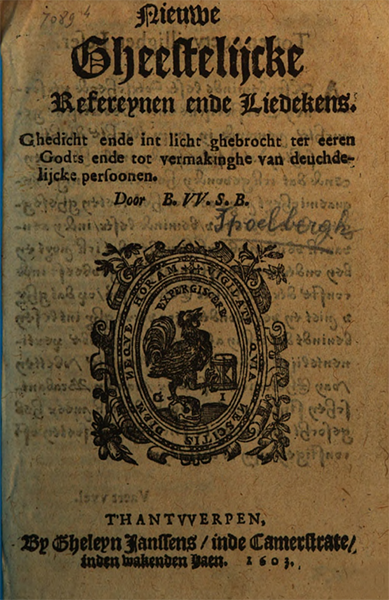 7089
Nieuwe
Gheestelijcke
Refereynen ende Liedekens.
Ghedicht ende int licht ghebrocht ter eeren
Godts ende tot vermakinghe van deuchde-
lijcke persoonen.
Door B. VV. S. B.
Spoelbergh
VIGILATE QVIA NESCITIS DIEM NEQVE HORAM
EXPERGISCIMI
G I
THANTVVERPEN,
By Gheleyn Janssens / inde Camerstrate /
inden wakenden Haen. 1603.